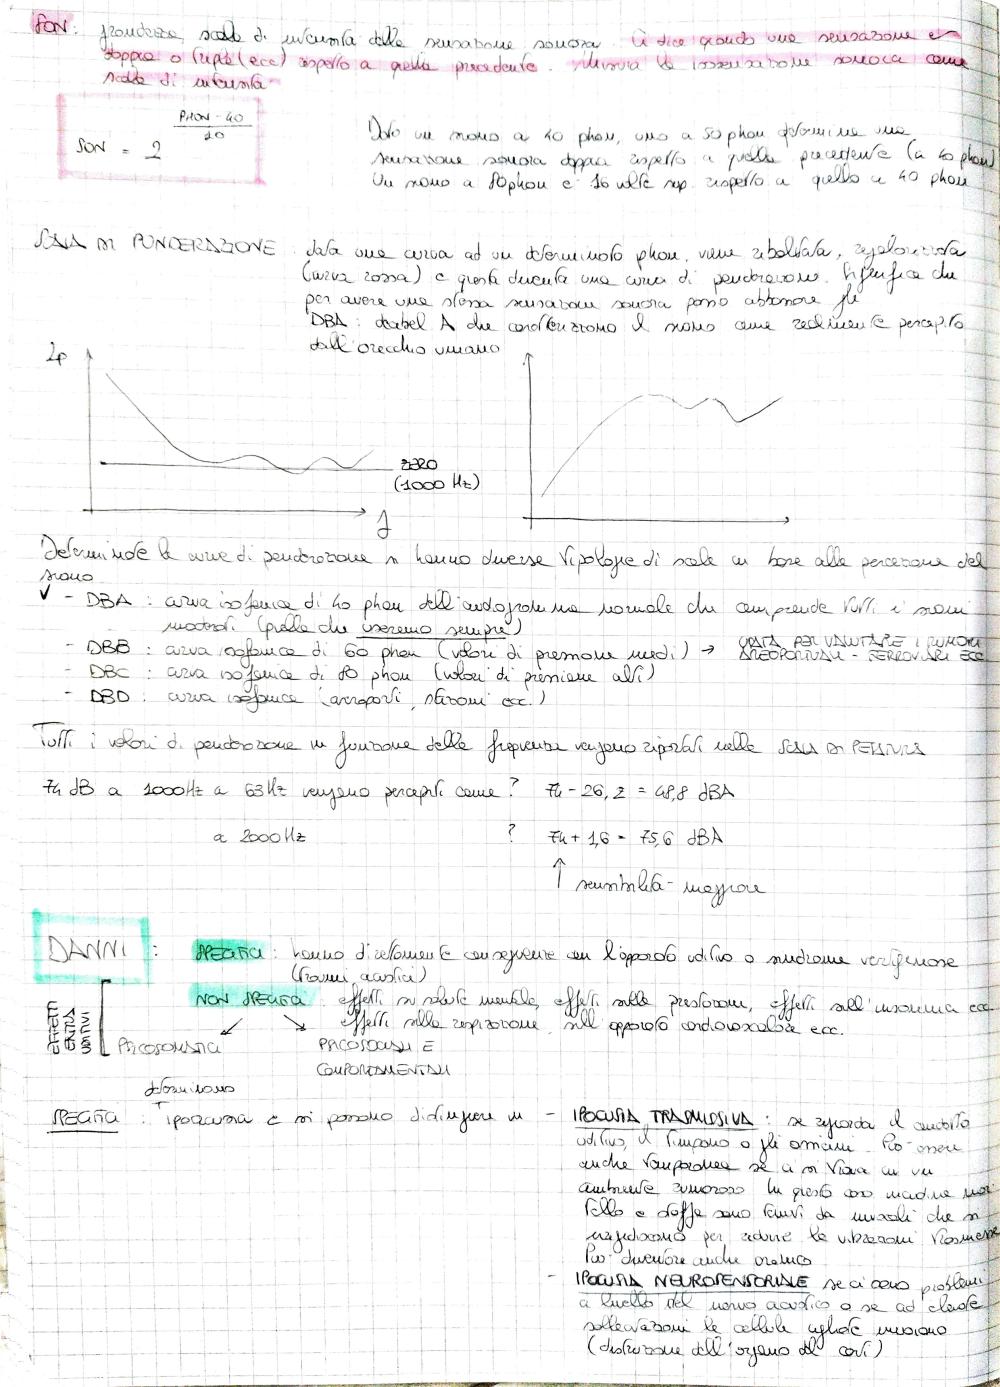 SON: grandezza, scala di intensità della sensazione sonora. Ci dice quando una sensazione è
doppia o tripla (ecc) rispetto a quella precedente. Misura la sensazione sonora come
scala di intensità
SON = 2^(PHON - 40 / 10)
Dato un suono a 40 phon, uno a 50 phon determina una
sensazione sonora doppia rispetto a quella precedente (a 40 phon)
Un suono a 80 phon è 16 volte sup. rispetto a quello a 40 phon
SCALA DI PONDERAZIONE: data una curva ad un determinato phon, viene ribaltata,
(curva rossa) e questa diventa una curva di ponderazione. Significa che
per avere una stessa sensazione sonora posso abbonare gli
DBA: decibel A che caratterizzano il suono come realmente percepito
dall'orecchio umano
Lp
zero
(1000 Hz)
f
Determinate le curve di ponderazione si hanno diverse tipologie di scale in base alla percezione del
suono
✓ - DBA: curva isofonica di 40 phon dell'audiogramma normale che comprende tutti i suoni
moderati (quella che useremo sempre)
- DBB: curva isofonica di 60 phon (valori di pressione medi) → USATA PER VALUTARE I RUMORI
AREOPORTUALI - FERROVIARI ECC
- DBC: curva isofonica di 80 phon (valori di pressione alti)
- DBD: curva isofonica (aeroporti, stazioni ecc.)
Tutti i valori di ponderazione in funzione delle frequenze vengono riportati nella SCALA DI PESATURA
74 dB a 1000Hz a 63Hz vengono percepiti come? 74 - 26,2 = 48,8 dBA
a 2000Hz ? 74 + 1,6 = 75,6 dBA
↑ sensibilità maggiore
DANNI: SPECIFICI: hanno direttamente conseguenze con l'apparato uditivo o sindrome vertiginose
(traumi acustici)
NON SPECIFICI: effetti su salute mentale, effetti sulle prestazioni, effetti sull'insonnia ecc
effetti sulla respirazione, sull'apparato cardiovascolare ecc.
EFFETTI
EXTRA
UDITIVI
PSICOSOMATICI
PSICOSOCIALI E
COMPORTAMENTALI
determinano
SPECIFICI: Ipoacusia e si possono distinguere in - IPOCUSIA TRASMISSIVA: se riguarda il condotto
uditivo, il timpano o gli ossicini. Può essere
anche temporanea se ci si trova in un
ambiente rumoroso. In questo caso incudine mar
tello e staffa sono tenuti da muscoli che si
irrigidiscono per ridurre le vibrazioni trasmesse
Può diventare anche cronico
- IPOCUSIA NEUROSENSORIALE se ci sono problemi
a livello del nervo acustico o se ad elevate
sollecitazioni le cellule cigliate muoiono
(distruzione dell'organo del corti)